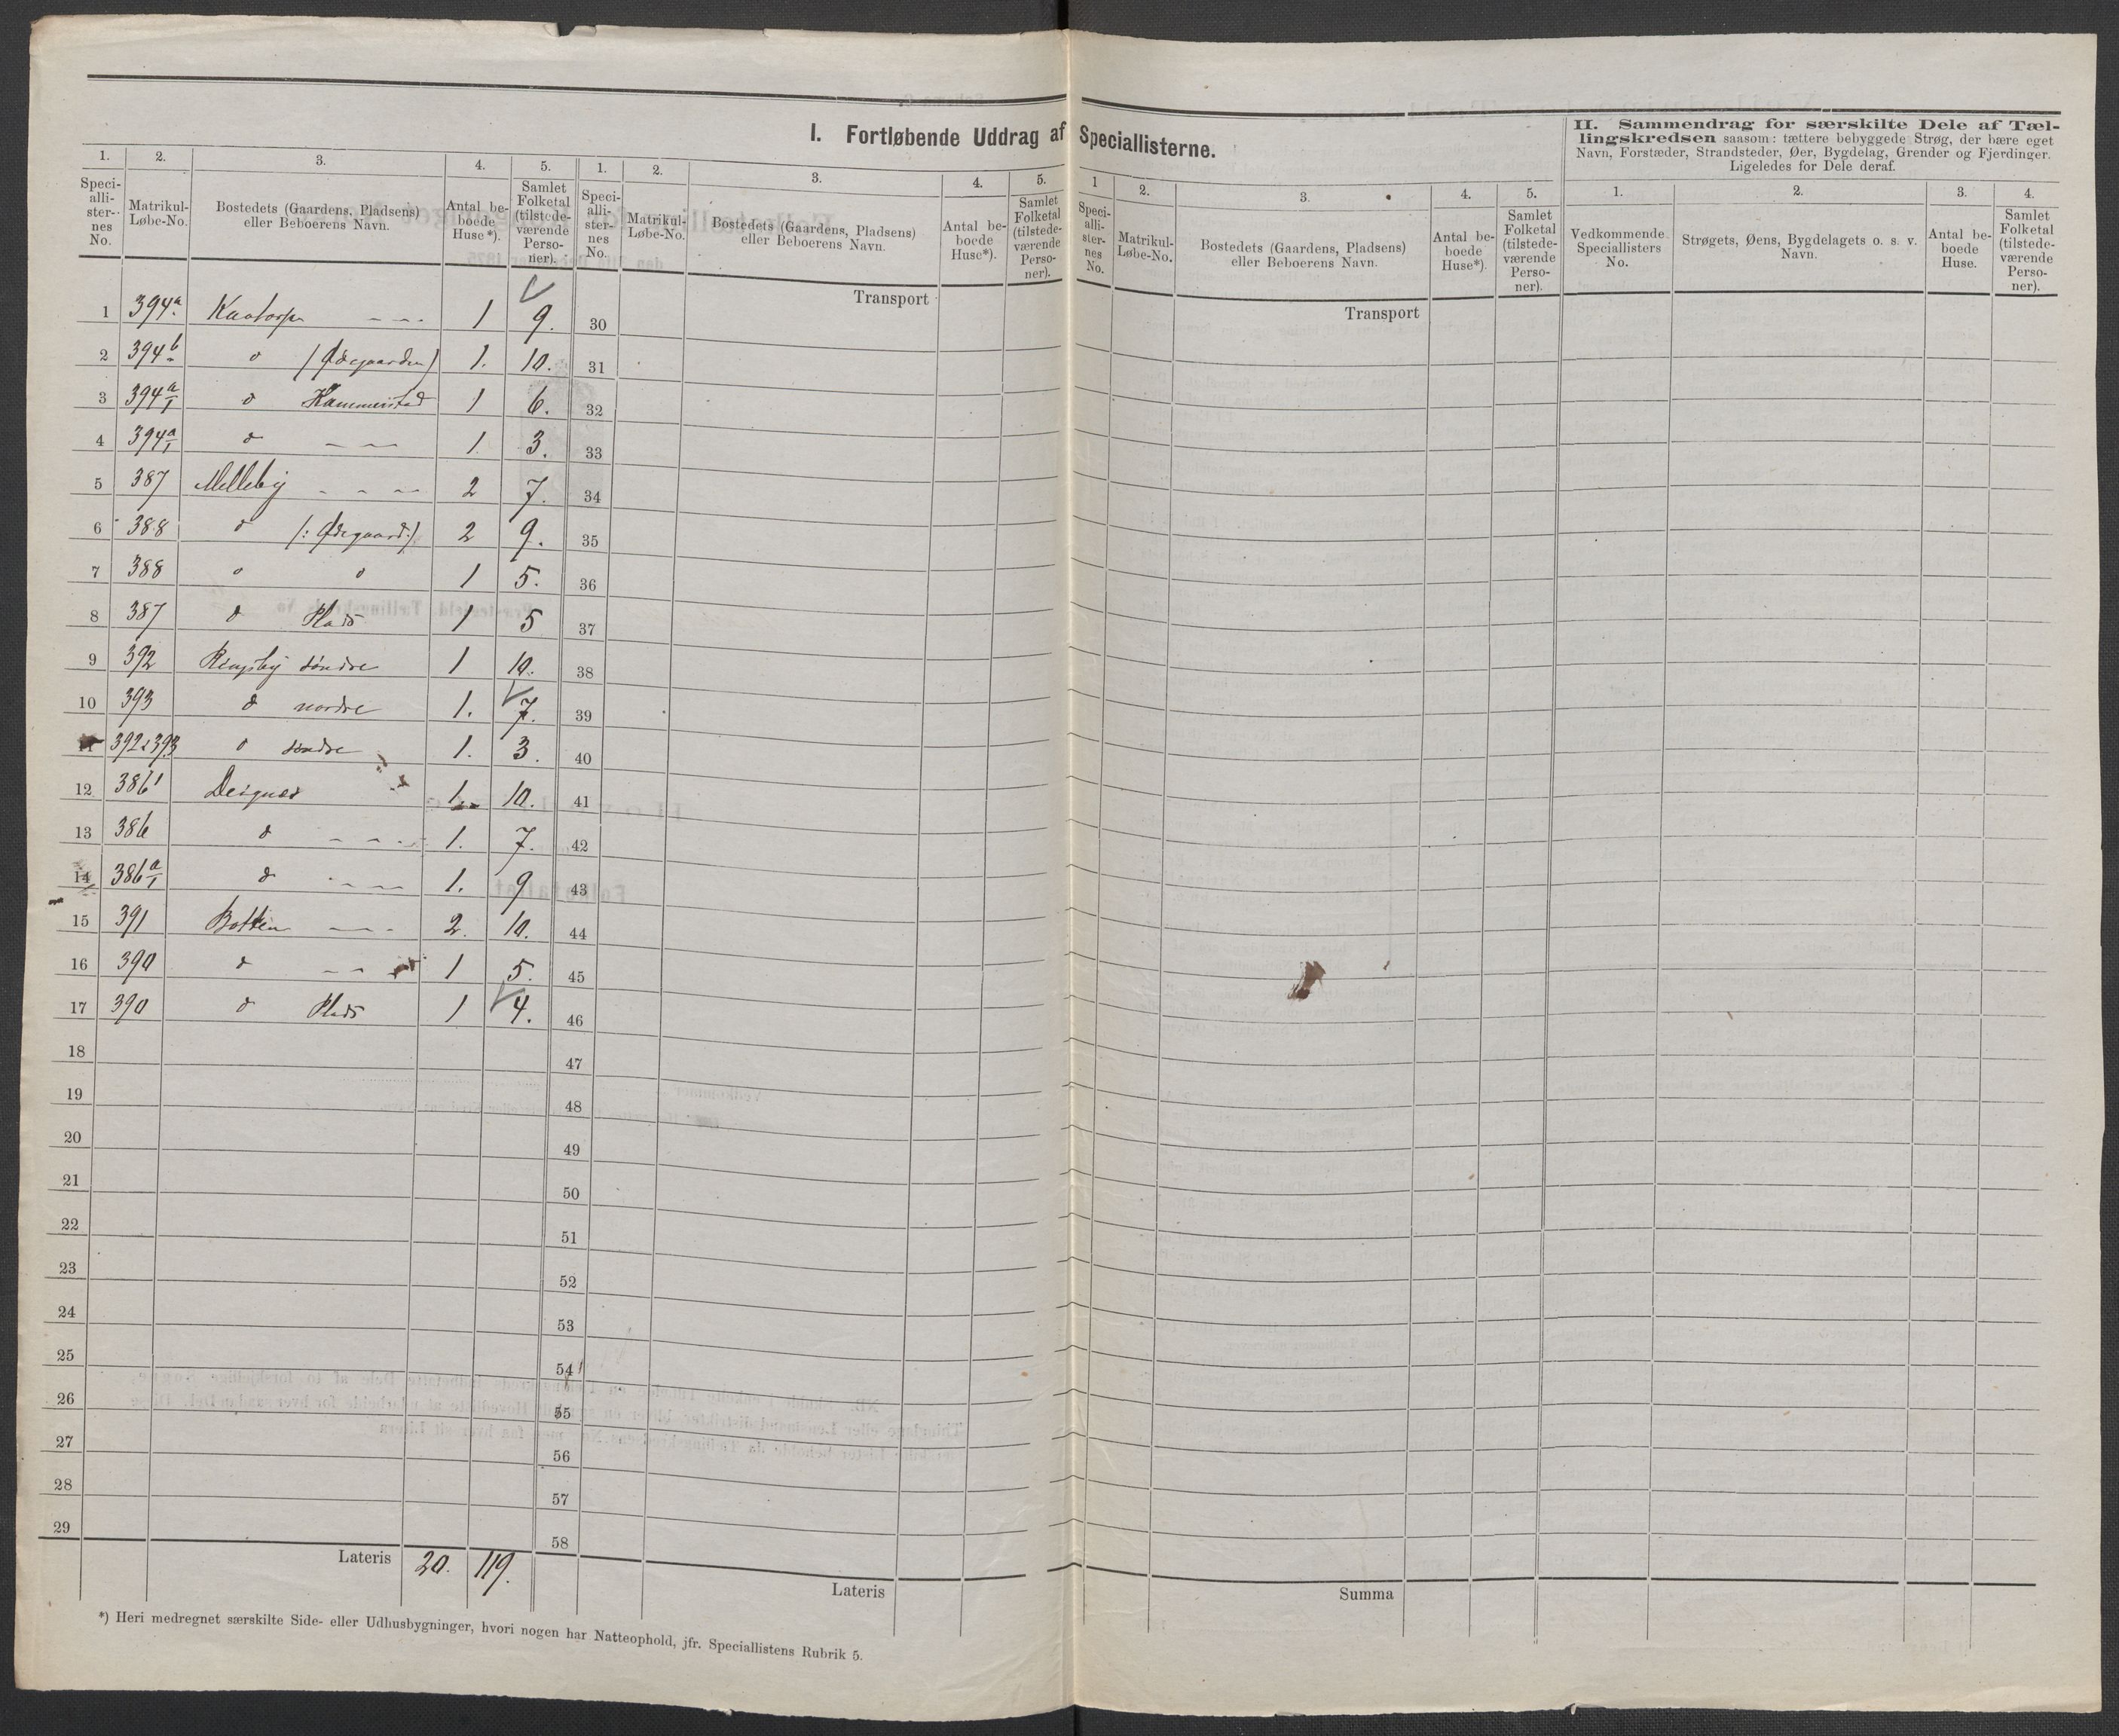 I. Fortløbende Uddrag af Speciallisterne.
II. Sammendrag for særskilte Dele af Tæl-
lingskredsen saasom: tættere bebyggede Strøg, der bære eget
Navn, Forstæder, Strandsteder, Øer, Bygdelag, Grender og Fjerdinger.
Ligeledes for Dele deraf.
1. 2. 3. 4. 5. 1. 2. 3. 4. 5. 1 2. 3. 4. 5. 1. 2. 3. 4.
Speci-alli-ster-nes No. Matrikul-Løbe-No. Bostedets (Gaardens, Pladsens) eller Beboerens Navn. Antal be-boede Huse*). Samlet Folketal (tilstede-værende Perso-ner).
Speci-alli-ster-nes No. Matrikul-Løbe-No. Bostedets (Gaardens, Pladsens) eller Beboerens Navn. Antal be-boede Huse*). Samlet Folketal (tilstede-værende Perso-ner).
Speci-alli-ster-nes No. Matrikul-Løbe-No. Bostedets (Gaardens, Pladsens) eller Beboerens Navn. Antal be-boede Huse*). Samlet Folketal (tilstede-værende Perso-ner).
Vedkommende Speciallisters No. Strøgets, Øens, Bygdelagets o. s. v. Navn. Antal be-boede Huse. Samlet Folketal (tilstede-værende Perso-ner).
Transport Transport
1 394a. 1 9. 30
2 394b. d (Ødegaarden) 1. 10. 31
3 394a/1 d Hammerstad 1 6. 32
4 394a/1 d 1. 3. 33
5 387 Melleby 2 7. 34
6 388 d (: Ødegaard :) 2 9. 35
7 388 d d 1 5. 36
8 387 d Plads 1 5 37
9 392 Ringsby søndre 1 10. 38
10 393 d nordre 1. 7. 39
11 392 & 393 d søndre 1. 3. 40
12 386 1 Deignes 1. 10. 41
13 386 d 1. 7. 42
14 386a/1 d 1. 9 43
15 391 Botten 2. 10. 44
16 390 d 1 5. 45
17 390 d Plads 1 4. 46
18 47
19 48
20 49
21 50
22 51
23 52
24 53
25 54
26 55
27 56
28 57
29 58
Lateris 20. 119. Lateris Summa
*) Heri medregnet særskilte Side- eller Udhusbygninger, hvori nogen har Natteophold, jfr. Speciallistens Rubrik 5.